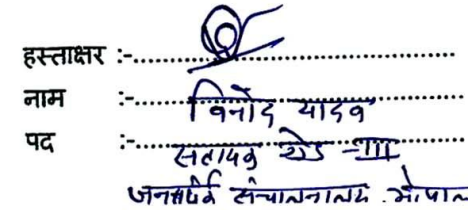 हस्ताक्षर :-
नाम :- विनोद यादव
पद :- सहायक ग्रेड -III
जनसंपर्क संचालनालय. भोपाल